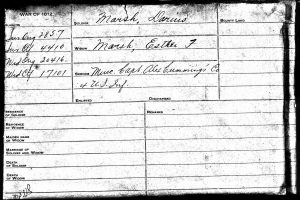 WAR OF 1812
SOLDIER Marsh, Darius BOUNTY LAND
Inv Orig 3857
Inv Ctf 4410 WIDOW Marsh, Esther F
Wid Orig 30416
Wid Ctf 17101 SERVICE Capt Alex Cummings Co
4 U.S. Inf.
ENLISTED DISCHARGED
RESIDENCE OF SOLDIER REMARKS
RESIDENCE OF WIDOW
MAIDEN NAME OF WIDOW
MARRIAGE OF SOLDIER AND WIDOW
DEATH OF SOLDIER
DEATH OF WIDOW